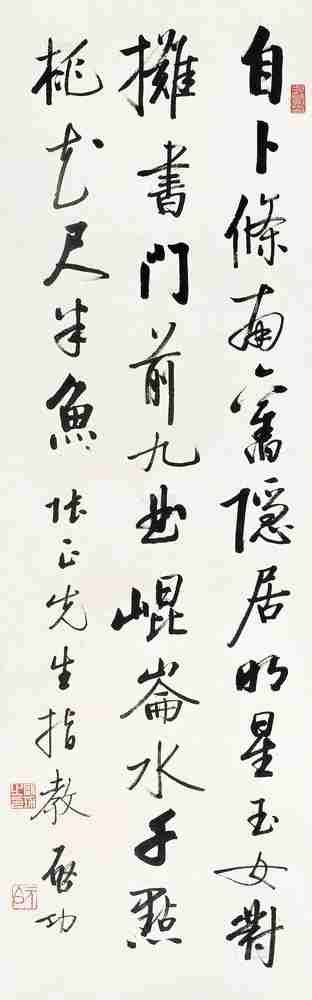 自卜條南舊隱居明星玉女對
攤書門前九曲崐崙水千點
桃花尺半魚 張正先生指教 啟功